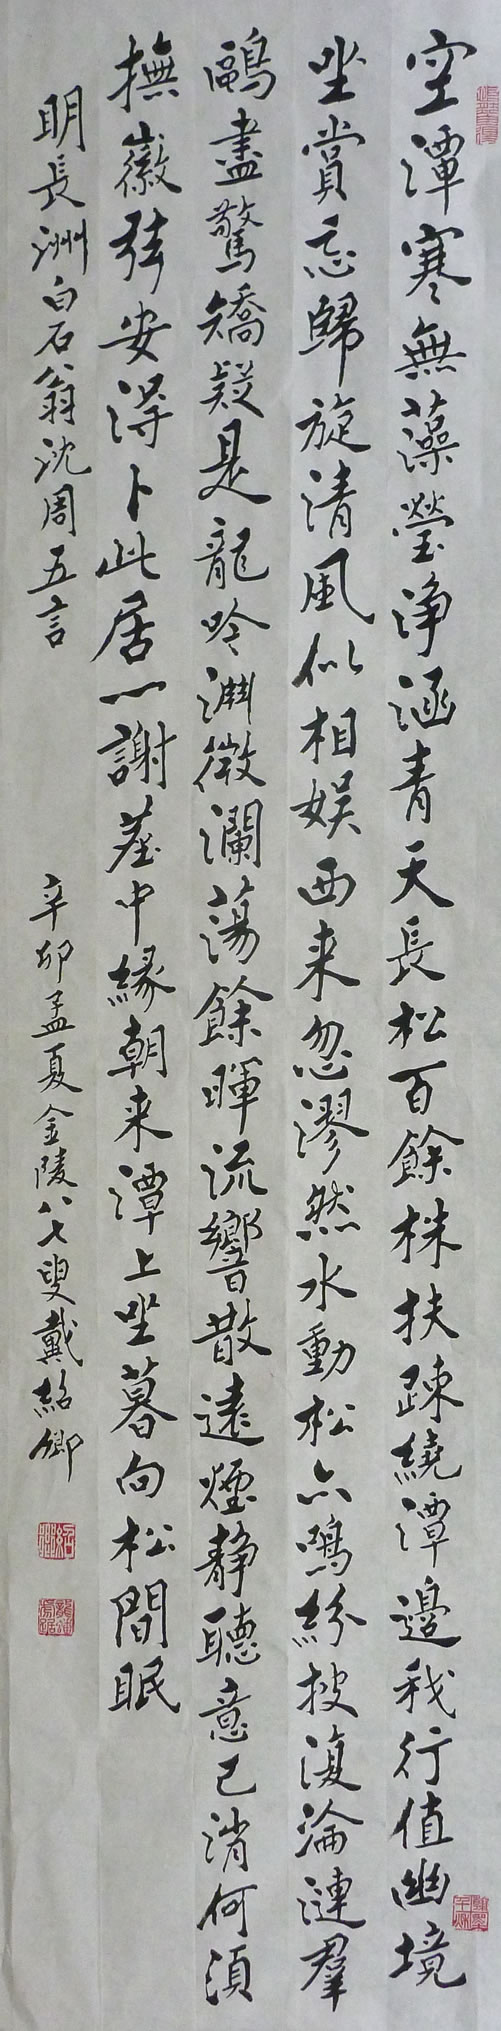 空潭寒無藻瑩淨涵青天長松百餘株扶疎繞潭邊我行值幽境
坐賞忘歸旋清風似相娛西来忽漻然水動松亦鳴紛披復淪漣羣
鷗盡驚矯疑是龍吟淵微瀾蕩餘暉流響散遠煙静聽意已消何須
撫徽弦安得卜此居一謝塵中緣朝来潭上坐暮向松間眠
明長洲白石翁沈周五言
辛卯孟夏金陵八七叟戴紹卿